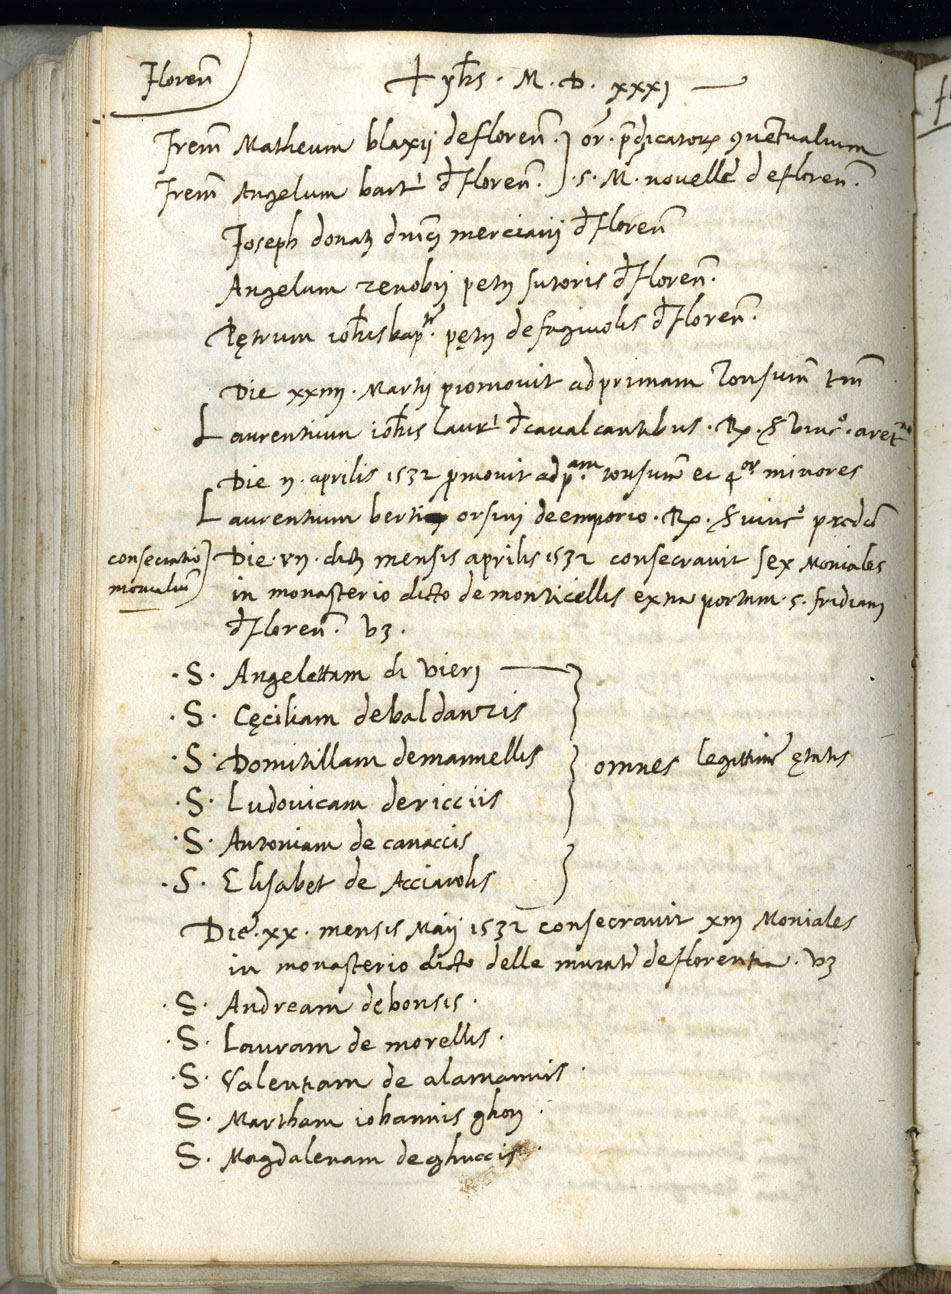 Floren̄
+ yh̄s · M · D · xxxj
Frem̄ Matheum blaxij de floren̄ · or̄ · p̄dicatorꝝ ꝯuentualium
Frem̄ Angelum bart' d̄ floren̄ · S · M · novelle d e floren̄ ·
Joseph donatj merciarij d̄ floren̄
Angelum zenobij petrj sutoris d̄ floren̄ ·
Pętrum ioh̄isbapt · pętrj de d̄ floren̄ ·
Die xxiiij · Martij promovit ad primam tonsurā tm̄
Laurentium ioh̄is laur' d̄ cavalcantibus · &
Die ij · aprilis 1532 promovit ad p.am tonsurā et 4or minores
Laurentium orsini de emporio · &
consecratio
monialiū
Die · vij · mensis aprilis 1532 consecravit sex Moniales
in monasterio dicto de monticellis extra portam · s · fridiani
d̄ floren̄ · vz ·
· S · Angelettam di vieri
· S · Cęciliam de baldauzis
· S · Domitillam demannellis omnes legittime ętatis
· S · Ludovicam dericciis
· S · Antoniam de canaccis
· S · Elisabet de Acciavolis
Die · xx · mensis Maij 1532 consecravit xiij Moniales
in monasterio dicto delle murate de florentia · vz
· S · Andream debonsis ·
· S · Lauram de morellis ·
· S · Valentiam de alamannis ·
S · Martham iohannis ghorj ·
S · Magdalenam deghuccis ·